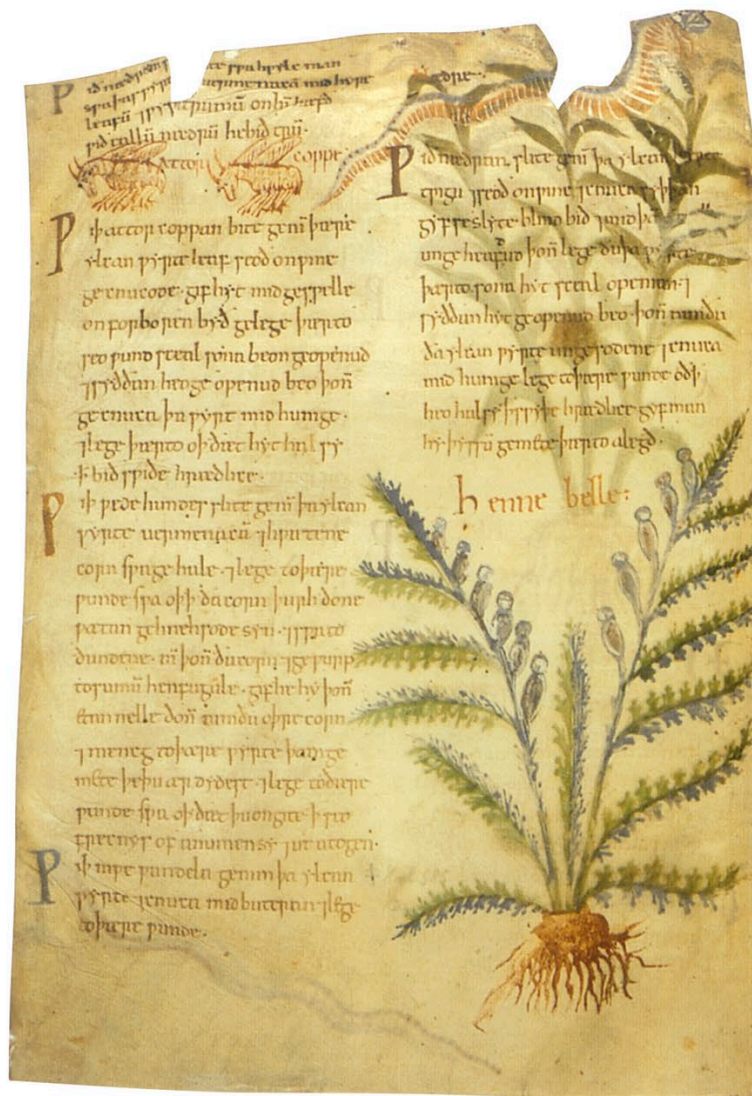 Ƿið nædran swa hwylc man
swa þas wyrt uermenacā mid hyre
leafū 7 wyrttrumū on hī hæfð
wið eallū nædrū he bið trū.
ATTOR COPPE
Ƿiþ attor coppan bite genī þære
ylcan wyrte leaf seoð on wine
gecnucode. gif hyt mid geswelle
on forboren byð gelege þærto
seo wund sceal sona beon geopenud
7 syððan heo geopenud beo þoñ
gecnuca þa wyrt mid hunige.
7 lege þærto oþ ðæt hyt hal sy
ꝥ bið swiðe hrædlice.
Ƿiþ wedehundes slite genī þa ylcan
wyrte uermenacā 7 hwætene
corn swa ge hale. 7 lege to þære
wunde swa oþꝥ ða corn þurh ðone
wætan gehnehsode syn. 7 swa to
ðundene. nī þoñ ða corn 7 gewurp
to sumū henfugule. gif he hy þoñ
etan nelle ðoñ nim ðu oþre corn
7 meneg to þære wyrte þam ge
mete þe þu ær dydest. 7 lege to ðære
wunde swa oþ ðæt þu ongite ꝥ seo
frecnys of anumen sy. 7 ut atogen.
Ƿiþ niwe wundela genim þa ylcan
wyrte 7 cnuca mid buteran 7 lege
to þære wunde.
nædre.
Ƿið nædran slite genī þa ylcan wyrte
twigu 7 seod on wine 7 cnuca syþþan
gyf se slyte blind bið 7 mid þā
unge heafdud þoñ lege ðu þa wyrte
þærto sona hyt sceal openian. 7
syððan hyt geopenud beo. þoñ nim ðu
ða ylcan wyrte ungesodene 7 cnuca
mid hunige lege to þære wunde oðꝥ
heo hal sy ꝥ ys swyþe hrædlice gyf man
hy þyssū gemete þærto alegð.
henne belle: